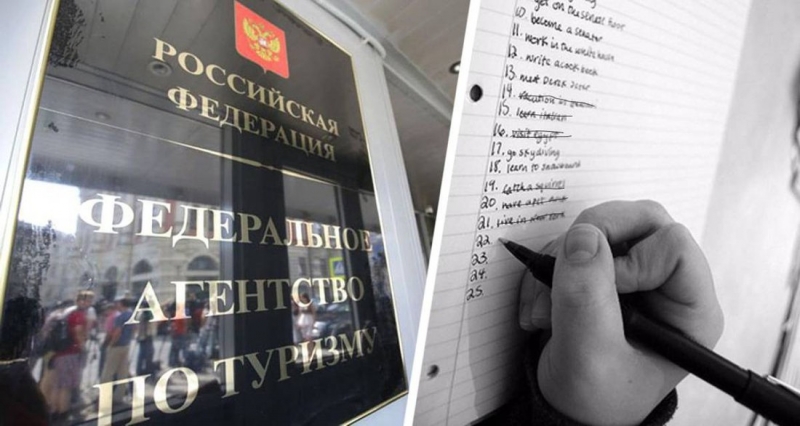 РОССИЙСКАЯ
ФЕДЕРАЦИЯ
ФЕДЕРАЛЬНОЕ
АГЕНТСТВО
ПО ТУРИЗМУ
get on
10. become a senator
11. work in the white
12. write a cook book
13. meet Derek Jeter
14. vacation in
15. learn italian
16. visit egypt
17. go skydiving
18. learn to snowboard
19. catch a squirrel
20. have a pet
21. live in
22.
23.
24.
25.